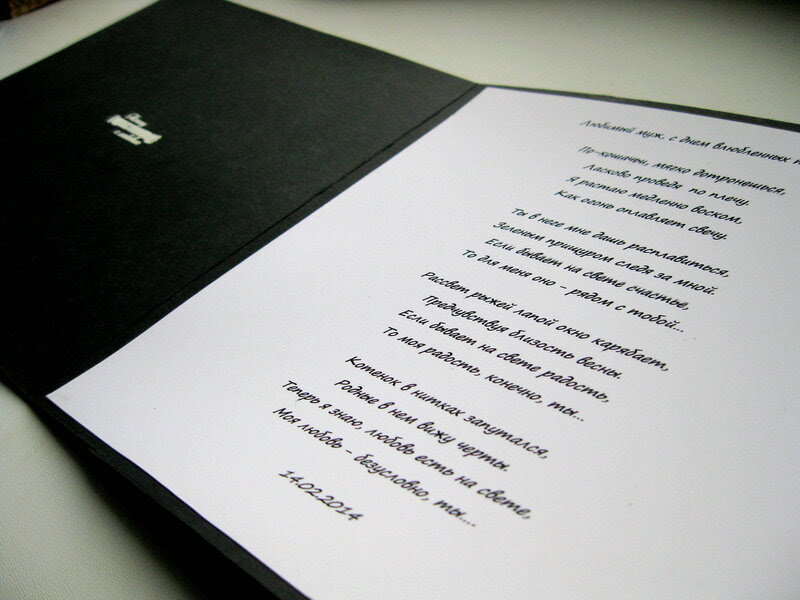 Любимый муж, с днем влюбленных
По-кошачьи, мягко дотронешься,
Ласково проведя по плечу.
Я растаю медленно воском,
Как огонь оплавляет свечу.
Ты в неге мне дашь расплавиться,
Зеленым прищуром следя за мной.
Если бывает на свете счастье,
То для меня оно – рядом с тобой...
Рассвет рыжей лапой окно карябает,
Предчувствуя близость весны.
Если бывает на свете радость,
То моя радость, конечно, ты...
Котенок в нитках запутался,
Родные в нем вижу черты.
Теперь я знаю, любовь есть на свете,
Моя любовь – безусловно, ты....
14.02.2014